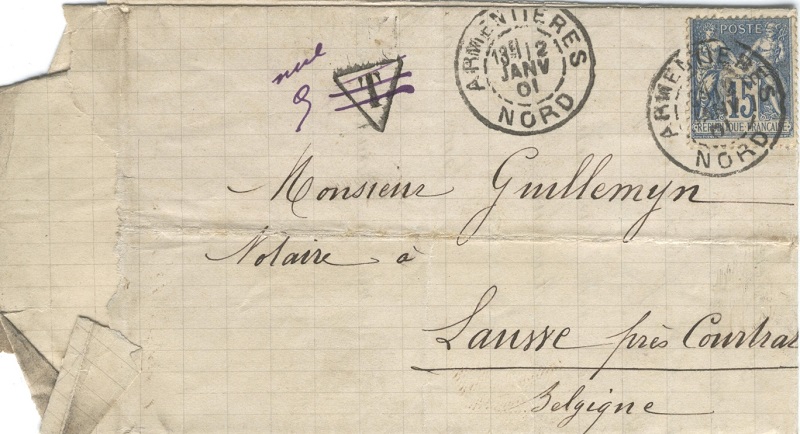 nul
T
ARMENTIERES
12
JANV
01
NORD
POSTE
15
REPUBLIQUE FRANÇAISE
ARMENTIERES
NORD
Monsieur Guillemyn
Notaire à
Lauwe près Courtrai
Belgique